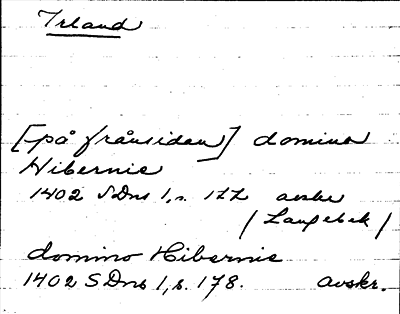 Irland
[på frånsidan] domino
Hibernie
1402 SDns 1, s. 177 avskr
/Langebek/
domino Hibernie
1402 SDns 1, s. 178. avskr.